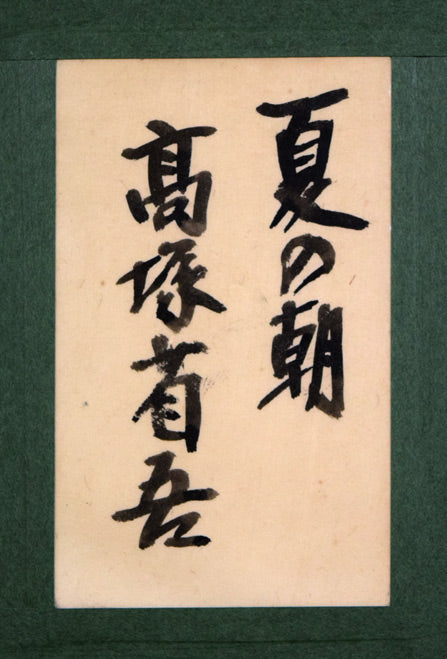 夏の朝
髙塚省吾